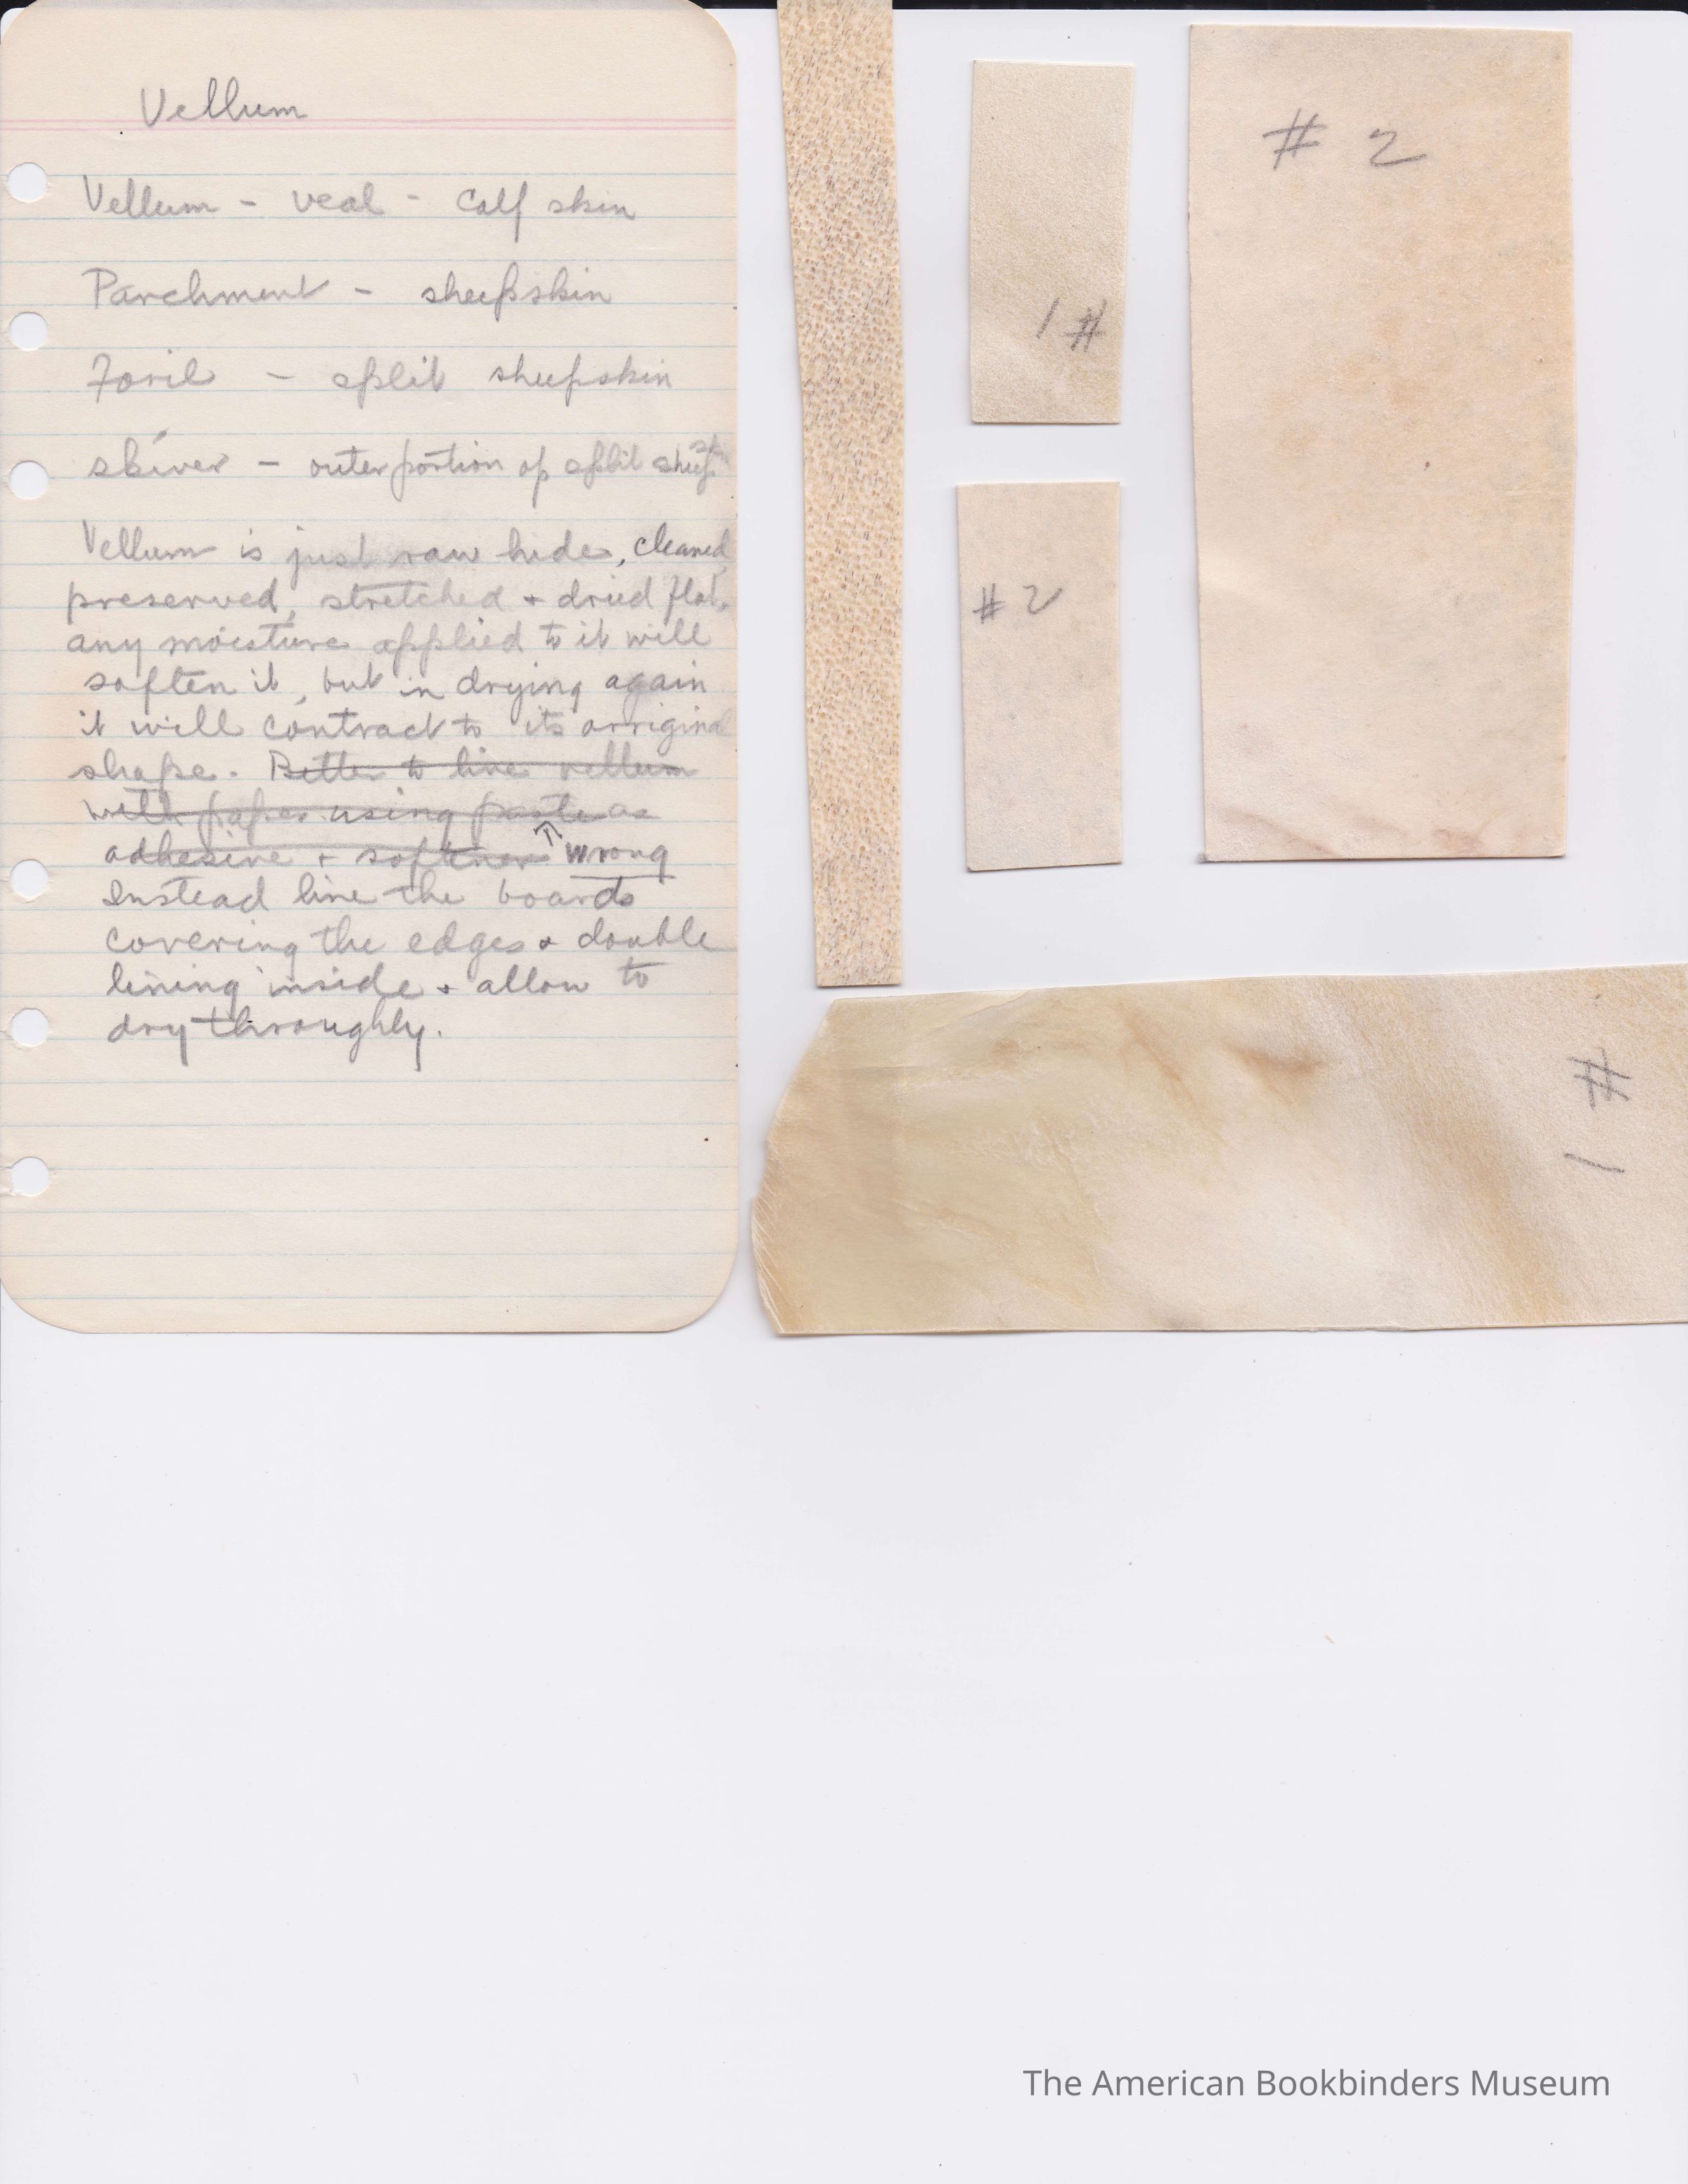 Vellum
Vellum - veal - Calf skin
Parchment - sheepskin
Foril - split sheepskin
skiver - outer portion of split sheepskin
Vellum is just raw hide, cleaned,
preserved, stretched + dried flat,
any moisture applied to it will
soften it, but in drying again
it will contract to its orriginal
shape. Better to line vellum
with paper using paste as
adhesive + softner wrong
Instead line the boards
covering the edges + double
lining inside + allow to
dry throughly.
1 #
# 2
# 2
# 1
The American Bookbinders Museum